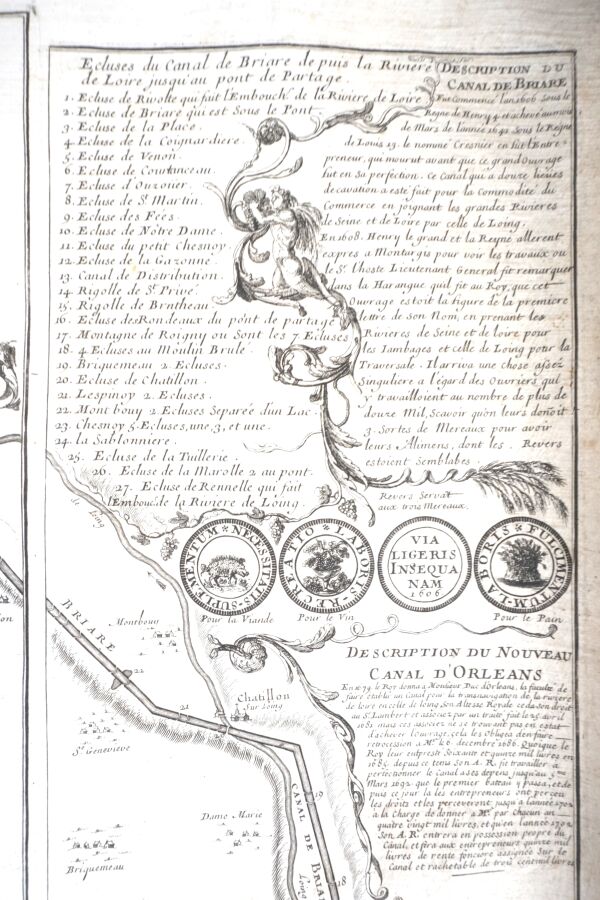 Ecluses du Canal de Briare depuis la Riviere
de Loire jusqu'au pont de Partage.
1. Ecluse de Rivolte qui fait l'Embouch.e de la Riviere de Loire
2. Ecluse de Briare qui est Sous le Pont.
3. Ecluse de la Place.
4. Ecluse de la Coignardiere.
5. Ecluse de Venon.
6. Ecluse de Courtenceau.
7. Ecluse d'Ouzouer.
8. Ecluse de St. Martin.
9. Ecluse des Fées.
10. Ecluse de Nôtre Dame.
11. Ecluse du petit Chesnoy.
12. Ecluse de la Gazonne.
13. Canal de Distribution.
14. Rigolle de St. Privé.
15. Rigolle de Brutheau.
16. Ecluse des Rondeaux du pont de partage
17. Montagne de Roigny ou Sont les 7 Ecluses
18. 4 Ecluses au Moulin Brulé.
19. Briquemeau 2 Ecluses.
20. Ecluse de Chatillon.
21. Lespinoy 2 Ecluses.
22. Mont bouy 2 Ecluses Separée d'un Lac.
23. Chesnoy 5 Ecluses, une, 3, et une.
24. la Sablonniere.
25. Ecluse de la Tuillerie.
26. Ecluse de la Marolle 2 au pont.
27. Ecluse de Rennelle qui fait
l'Embouc.e de la Riviere de Loing.
DESCRIPTION DU
CANAL DE BRIARE
Fut Commencé l'an 1606 Sous le
Regne de Henry 4 et achevé au mois
de Mars de l'année 1642 Sous le Regne
de Louis 13. le nommé Cresnier en fut l'Entre
preneur, qui mourut avant que ce grand Ouvrage
fut en Sa perfection. ce Canal qui a douze lieües
de cavation a esté fait pour la Commodité du
Commerce en joignant les grandes Rivieres
de Seine et de Loire par celle de Loing.
En 1608. Henry le grand et la Reyne allerent
expres a Montargis pour voir les travaux ou
le Sr. lhoste Lieutenant General fit remarquer
dans la Harangue qu'il fit au Roy, que cet
Ouvrage estoit la figure de la premiere
lettre de Son Nom, en prenant les
Rivieres de Seine et de loire pour
les Iambages et celle de Loing pour la
Traversale. Il arriva une chose assez
Singuliere a l'égard des Ouvriers qui
y travailloient au nombre de plus de
douze Mil, Scavoir qu'on leurs donoit
3. Sortes de Mereaux pour avoir
leurs Allimens, dont les Revers
estoient Semblabes.
Revers Servāt
aux trois Mereaux.
SUPLEMENTUM NECESSITATIS
RECREATIO LABORIS
VIA
LIGERIS
INSEQUA
NAM
1606
LABORIS FULCIMENTUM
Pour la Viande
Pour le Vin
Pour le Pain
de Loing
BRIARE
Montbouy
22
21
20
Chatillon
Sur Loing
St. Genevieve
Dame Marie
Briquemeau
19
CANAL DE BRIA
18
DESCRIPTION DU NOUVEAU
CANAL D'ORLEANS
En 1679 le Roy donna a Monsieur Duc d'Orleans, la faculté de
faire établir un Canal pour la transnavigation de la riviere
de loire en celle de loing Son Altesse Royale ceda son droit
au Sr. Lambert et associez par un traité fait le 25 avril
1681 mais ces associez ne se trouvant pas en estat
d'achever l'ouvrage, cela les Obligea d'en faire
retrocession a Mr. le 6 decembre 1686. Quoique le
Roy leur entprestē Soixante et quinze mil livres en
1685. depuis ce tems Son A. R. fit travailler a
perfectionner le Canal a ses depens jusqu'au 5.me
Mars 1692. que le premier bateau y passa, et de
puis ce jour la les entrepreneurs ont perceu
les droits et les perceveront jusqu a lannée 1702
a la Charge de donner a Mr. par Chacun an
quatre vingt mil livres, et qu'en l'année 1702
Son A. R. entrera en possession propre du
Canal, et fera aux entrepreneurs quinze mil
livres de rente fonciere assignée Sur le
Canal et rachetable de trois cent mil livres